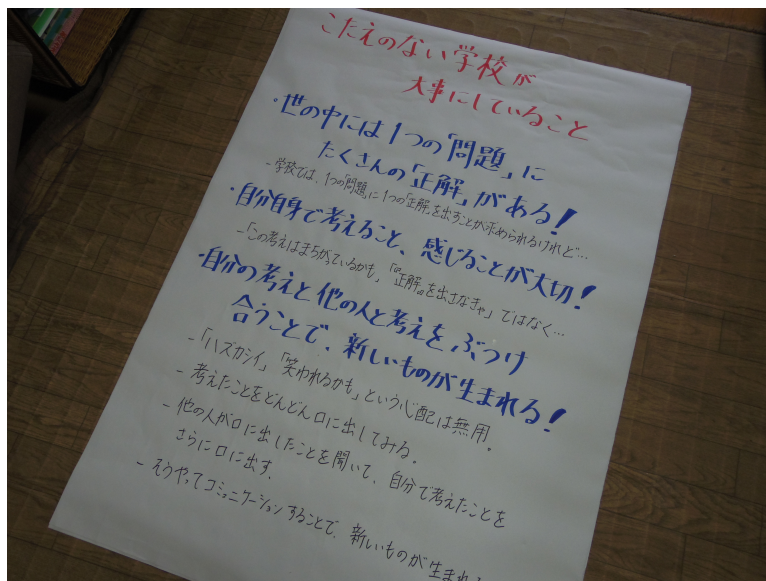 こたえのない学校が
大事にしていること
・世の中には1つの「問題」に
たくさんの「正解」がある！
－学校では、1つの「問題」に1つの「正解」を出すことが求められるけれど…
・自分自身で考えること、感じることが大切！
－「この考えはまちがっているかも」「『正解』を出さなきゃ」ではなく…
・自分の考えと他の人と考えをぶつけ
合うことで、新しいものが生まれる！
－「ハズカシイ」「笑われるかも」という心配は無用。
－考えたことをどんどん口に出してみる。
－他の人が口に出したことを聞いて、自分で考えたことを
さらに口に出す。
－そうやってコミュニケーションすることで、新しいものが生まれる